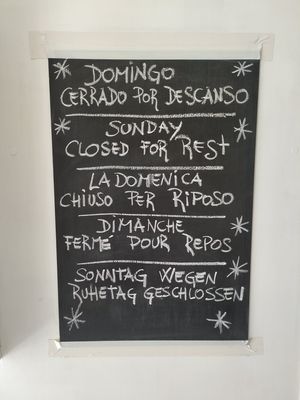 DOMINGO
CERRADO POR DESCANSO
SUNDAY
CLOSED FOR REST
LA DOMENICA
CHIUSO PER RIPOSO
DIMANCHE
FERMÉ POUR REPOS
SONNTAG WEGEN
RUHETAG GESCHLOSSEN